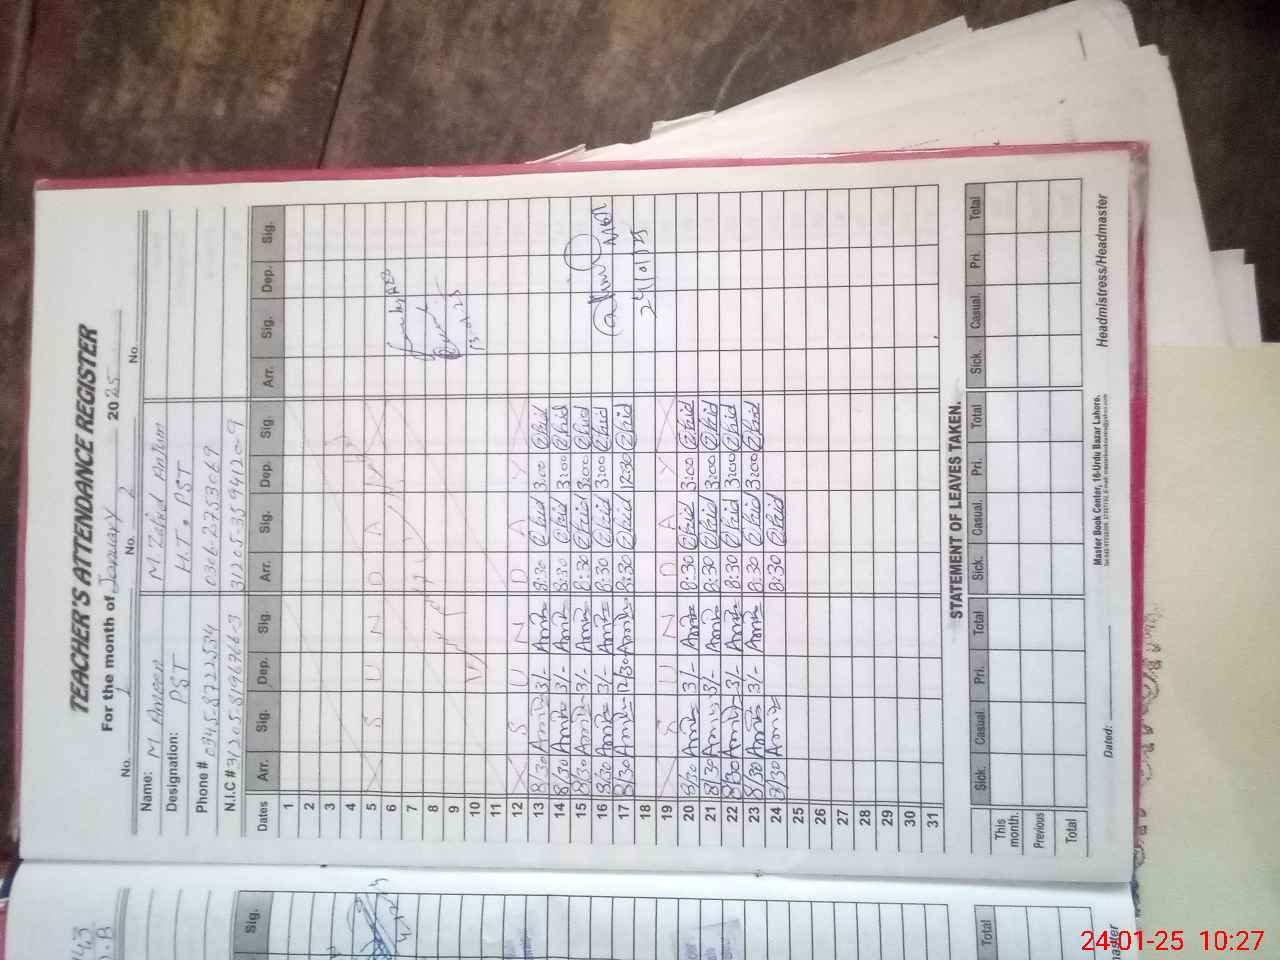 TEACHER'S ATTENDANCE REGISTER
For the month of January 2025
No. 1 No. 2 No.
Name: M. Ameen M. Zahid Anjum
Designation: PST H.T. PST
Phone # 0345-8722534 0306-2753069
N.I.C # 31205-8196766-3 31205-3594120-9
Dates Arr. Sig. Dep. Sig. Arr. Sig. Dep. Sig. Arr. Sig. Dep. Sig.
1
2
3
4
5 S U N D A Y
6
7
8
9
10
11
12 S U N D A Y
13 8/30 3/- 8:30 3:00
14 8/30 3/- 8:30 3:00
15 8/30 3/- 8:30 3:00
16 8/30 3/- 8:30 3:00
17 8/30 12/30 8:30 12:30
18 24/01/25
19 S U N D A Y
20 8/30 3/- 8:30 3:00
21 8/30 3/- 8:30 3:00
22 8/30 3/- 8:30 3:00
23 8/30 3/- 8:30 3:00
24 8/30 8:30
25
26
27
28
29
30
31
STATEMENT OF LEAVES TAKEN.
Sick. Casual. Pri. Total Sick. Casual. Pri. Total Sick. Casual. Pri. Total
This month.
Previous
Total
Master Book Center, 16-Urdu Bazar Lahore.
Dated: Headmistress/Headmaster
Sig.
Total
24-01-25 10:27